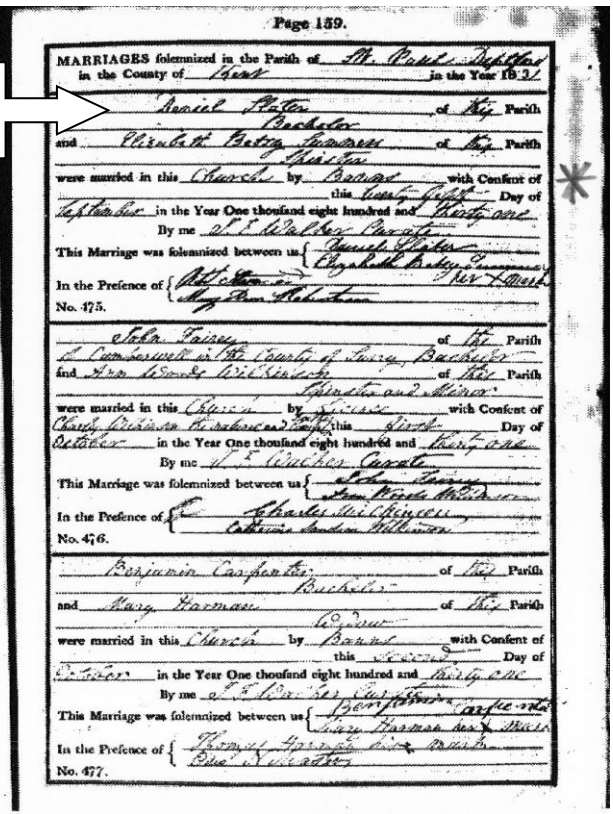 Page 159.
MARRIAGES solemnized in the Parish of St. Paul Deptford
in the County of Kent in the Year 1831
Daniel Slater of this Parish
Bachelor
and Elizabeth Betsy of this Parish
Spinster
were married in this Church by Banns with Consent of
this twenty fifth Day of
September in the Year One thousand eight hundred and thirty one
By me J E Walker Curate
This Marriage was solemnized between us Daniel Slater
Elizabeth Betsy
her X mark
In the Presence of
Mary Ann
No. 475.
John Fairey of the Parish
of Camberwell in the County of Surry, Bachelor
and Ann Woods Wilkinson of this Parish
Spinster and Minor
were married in this Church by Licence with Consent of
Charles Wilkinson the natural and this first Day of
October in the Year One thousand eight hundred and thirty one
By me J E Walker Curate
This Marriage was solemnized between us John Fairey
Ann Woods Wilkinson
In the Presence of Charles Wilkinson
Catherine Wilkinson
No. 476.
Benjamin Carpenter of this Parish
Bachelor
and Mary Harman of this Parish
Widow
were married in this Church by Banns with Consent of
this second Day of
October in the Year One thousand eight hundred and thirty one
By me J E Walker Curate
This Marriage was solemnized between us Benjamin Carpenter
Mary Harman her X mark
In the Presence of Thomas Harman his X mark
No. 477.